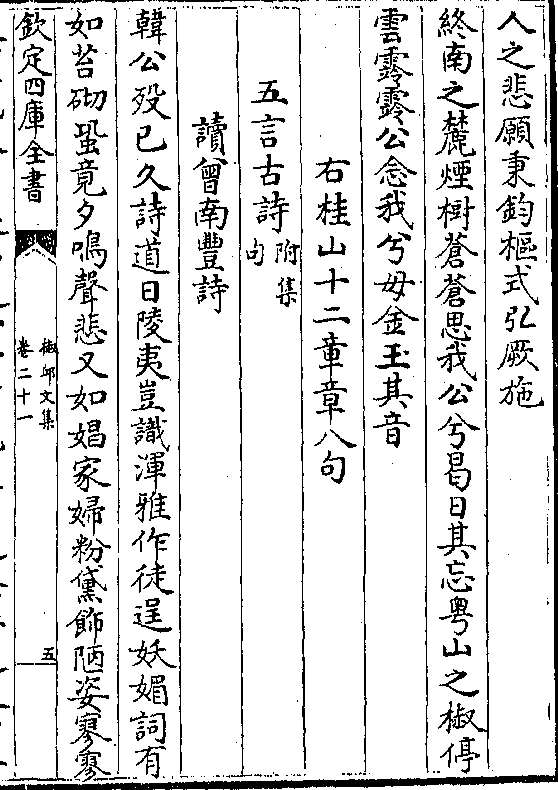 人之悲願秉鈞樞式弘厥施
終南之麓煙樹蒼蒼思我公兮曷日其忘粤山之椒停
雲露露公念我兮毋金玉其音
右桂山十二章章八句
五言古詩附集句
讀曾南豐詩
韓公殁已久詩道日陵夷豈識渾雅作徒逞妖媚詞有
如苔砌蛩竟夕鳴聲悲又如娼家婦粉黛飾陋姿寥寥
欽定四庫全書
椒邱文集
卷二十一
五